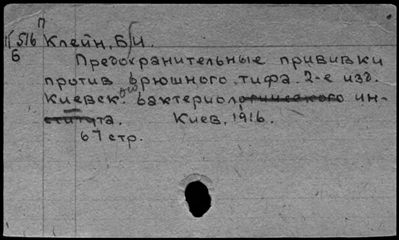 П
516 Клейн, Б.И.
Б
Предохранительные прививки
против брюшного тифа. 2-е изд.
Киевск. бактериологического ин-
ститута. Киев, 1916.
67 стр.